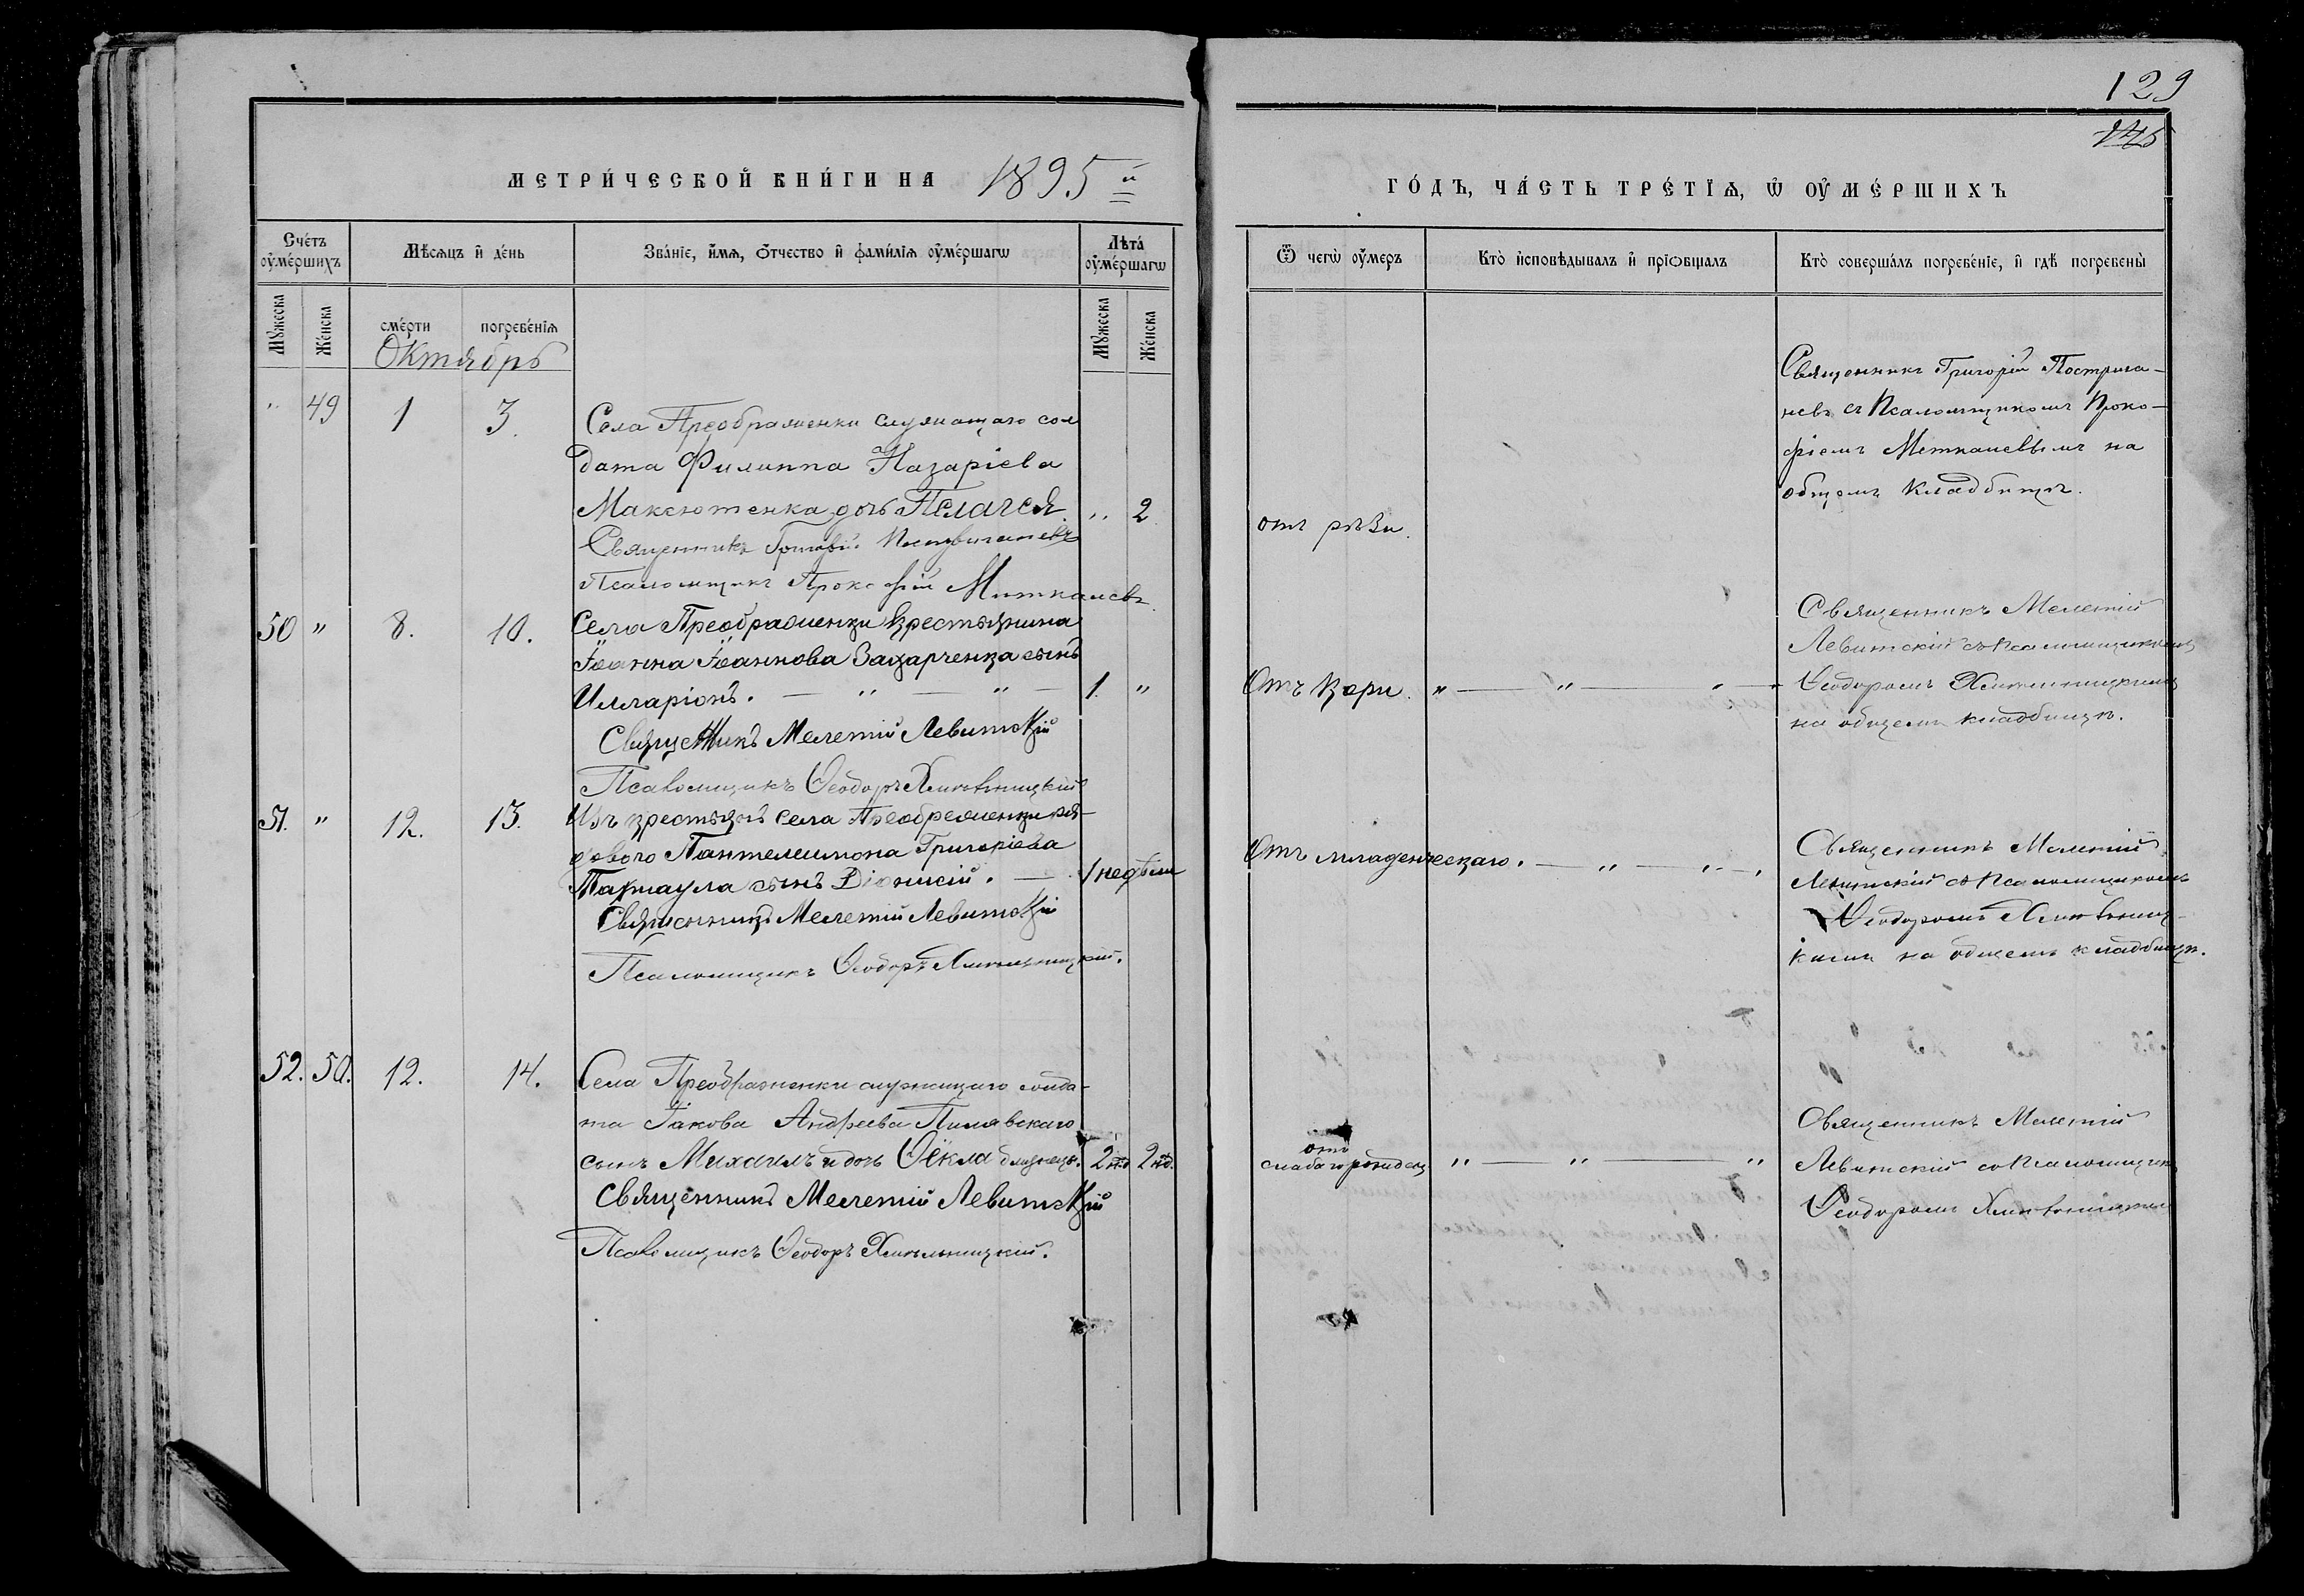 129
145
МЕТРИ́ЧЕСКОЙ КНИ́ГИ НА 1895й
ГО́ДЪ, ЧА́СТЬ ТРЕ́ТІѦ, Ѡ҆ ОУ҆МЕ́РШИХЪ
Сче́тъ оу҆ме́ршихъ
Мѣ́сѧцъ и҆ де́нь
Зва́нїе, и҆́мѧ, ѻ҆́тчество и҆ фами́лїѧ оу҆ме́ршагѡ
Лѣта̀ оу҆ме́ршагѡ
Ѿ чегѡ̀ оу҆́меръ
Кто̀ и҆сповѣ́дывалъ и҆ прїѡбща́лъ
Кто̀ соверша́лъ погребе́нїе, и҆ гдѣ̀ погребены̀
Мꙋ́жеска
Же́нска
сме́рти
погребе́нїѧ
Мꙋ́жеска
Же́нска
Октябрь
" 49 1 3.
Села Преображенки служащаго сол
дата Филиппа Назаріева
Максютенка дочь Пелагея. " 2.
Священникъ Григорій
Псаломщикъ Прокофій Миткалевъ.
отъ рѣзи.
Священникъ Григорій Пострига-
невъ съ Псаломщикомъ Проко-
фіемъ Миткалевымъ на
общемъ кладбищѣ.
50 " 8. 10.
Села Преображенки крестьянина
Іоанна Іоаннова Захарченка сынъ
Илларіонъ. — " — " — 1. "
Священникъ Мелетій Левитскій
Псаломщикъ Ѳеодоръ Хмѣльницкій
Отъ кори. " — " — " —
Священникъ Мелетій
Левитскій съ Псаломщикомъ
Ѳеодоромъ Хмѣльницкимъ
на общемъ кладбищѣ.
51. " 12. 13.
Изъ крестьянъ села Преображенки ря-
дового Пантелеимона Григоріева
сынъ Діонисій. — 1 недѣли
Священникъ Мелетій Левитскій
Псаломщикъ Ѳеодоръ Хмѣльницкій.
Отъ младенческаго. — " — " —
Священникъ Мелетій
Левитскій съ Псаломщикомъ
Ѳеодоромъ Хмѣльниц-
кимъ на общемъ кладбищѣ.
52. 50. 12. 14.
Села Преображенки служащаго солда-
та Іакова Андреева Пилявскаго
сынъ Михаилъ и дочь Ѳёкла близнецы. 2 нд 2 нд.
Священникъ Мелетій Левитскій
Псаломщикъ Ѳеодоръ Хмѣльницкій.
отъ
слабаго " — " — "
Священникъ Мелетій
Левитскій со Псаломщик
Ѳеодоромъ Хмѣльницким